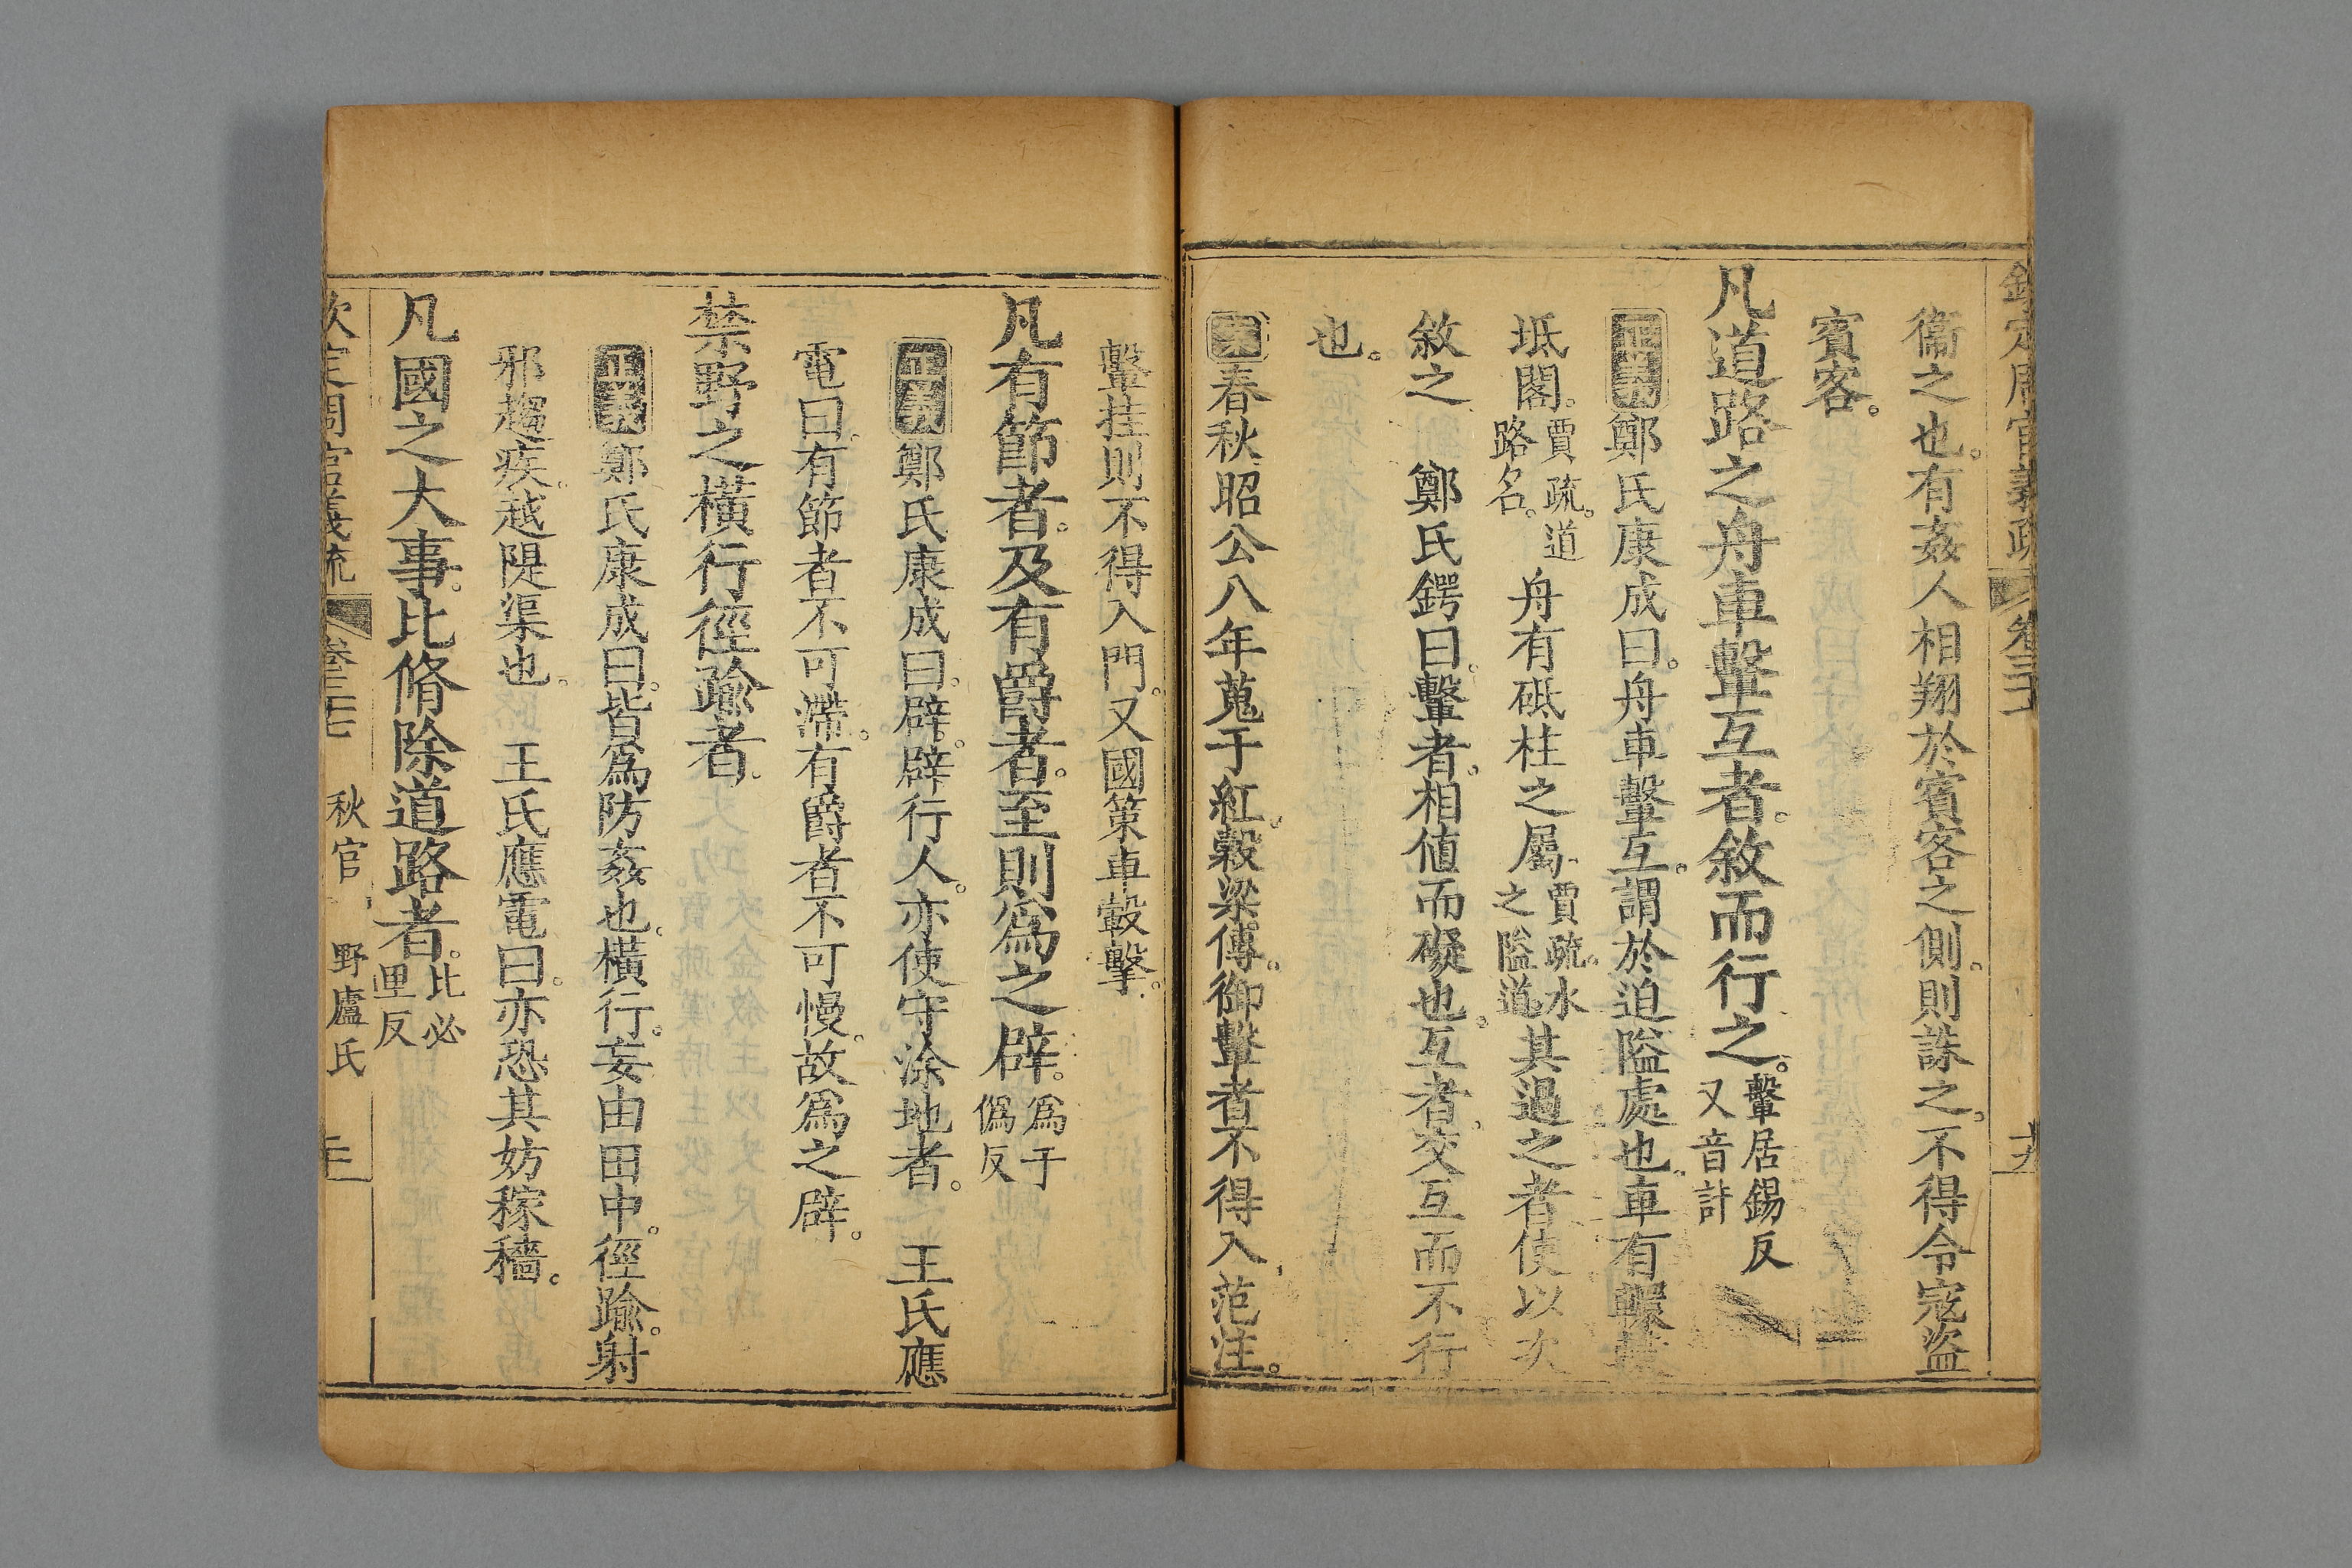 衞之也。有姦人相翔於賓客之側。則誅之。不得令寇盜
賓客。
凡道路之舟車轚互者。敘而行之。轚居錫反又音計
正義鄭氏康成曰。舟車轚互。謂於迫隘處也。車有轘轅
坻閣。賈疏。道路名。舟有砥柱之屬。賈疏。水之隘道。其過之者。使以次
敘之 鄭氏鍔曰。轚者。相値而礙也。互者。交互而不行
也。
案春秋昭公八年蒐于紅。榖梁傳。御轚者不得入。范注。
轚挂則不得入門。又國策車轂擊。
凡有節者。及有爵者。至則爲之辟。爲于僞反
正義鄭氏康成曰。辟。辟行人。亦使守涂地者。 王氏應
電曰。有節者不可滯。有爵者不可慢。故爲之辟。
禁野之橫行徑踰者。
正義鄭氏康成曰。皆爲防姦也。橫行。妄由田中。徑踰。射
邪趨疾。越隄渠也。 王氏應電曰。亦恐其妨稼穡。
凡國之大事。比脩除道路者。比必俚反
秋官 野廬氏